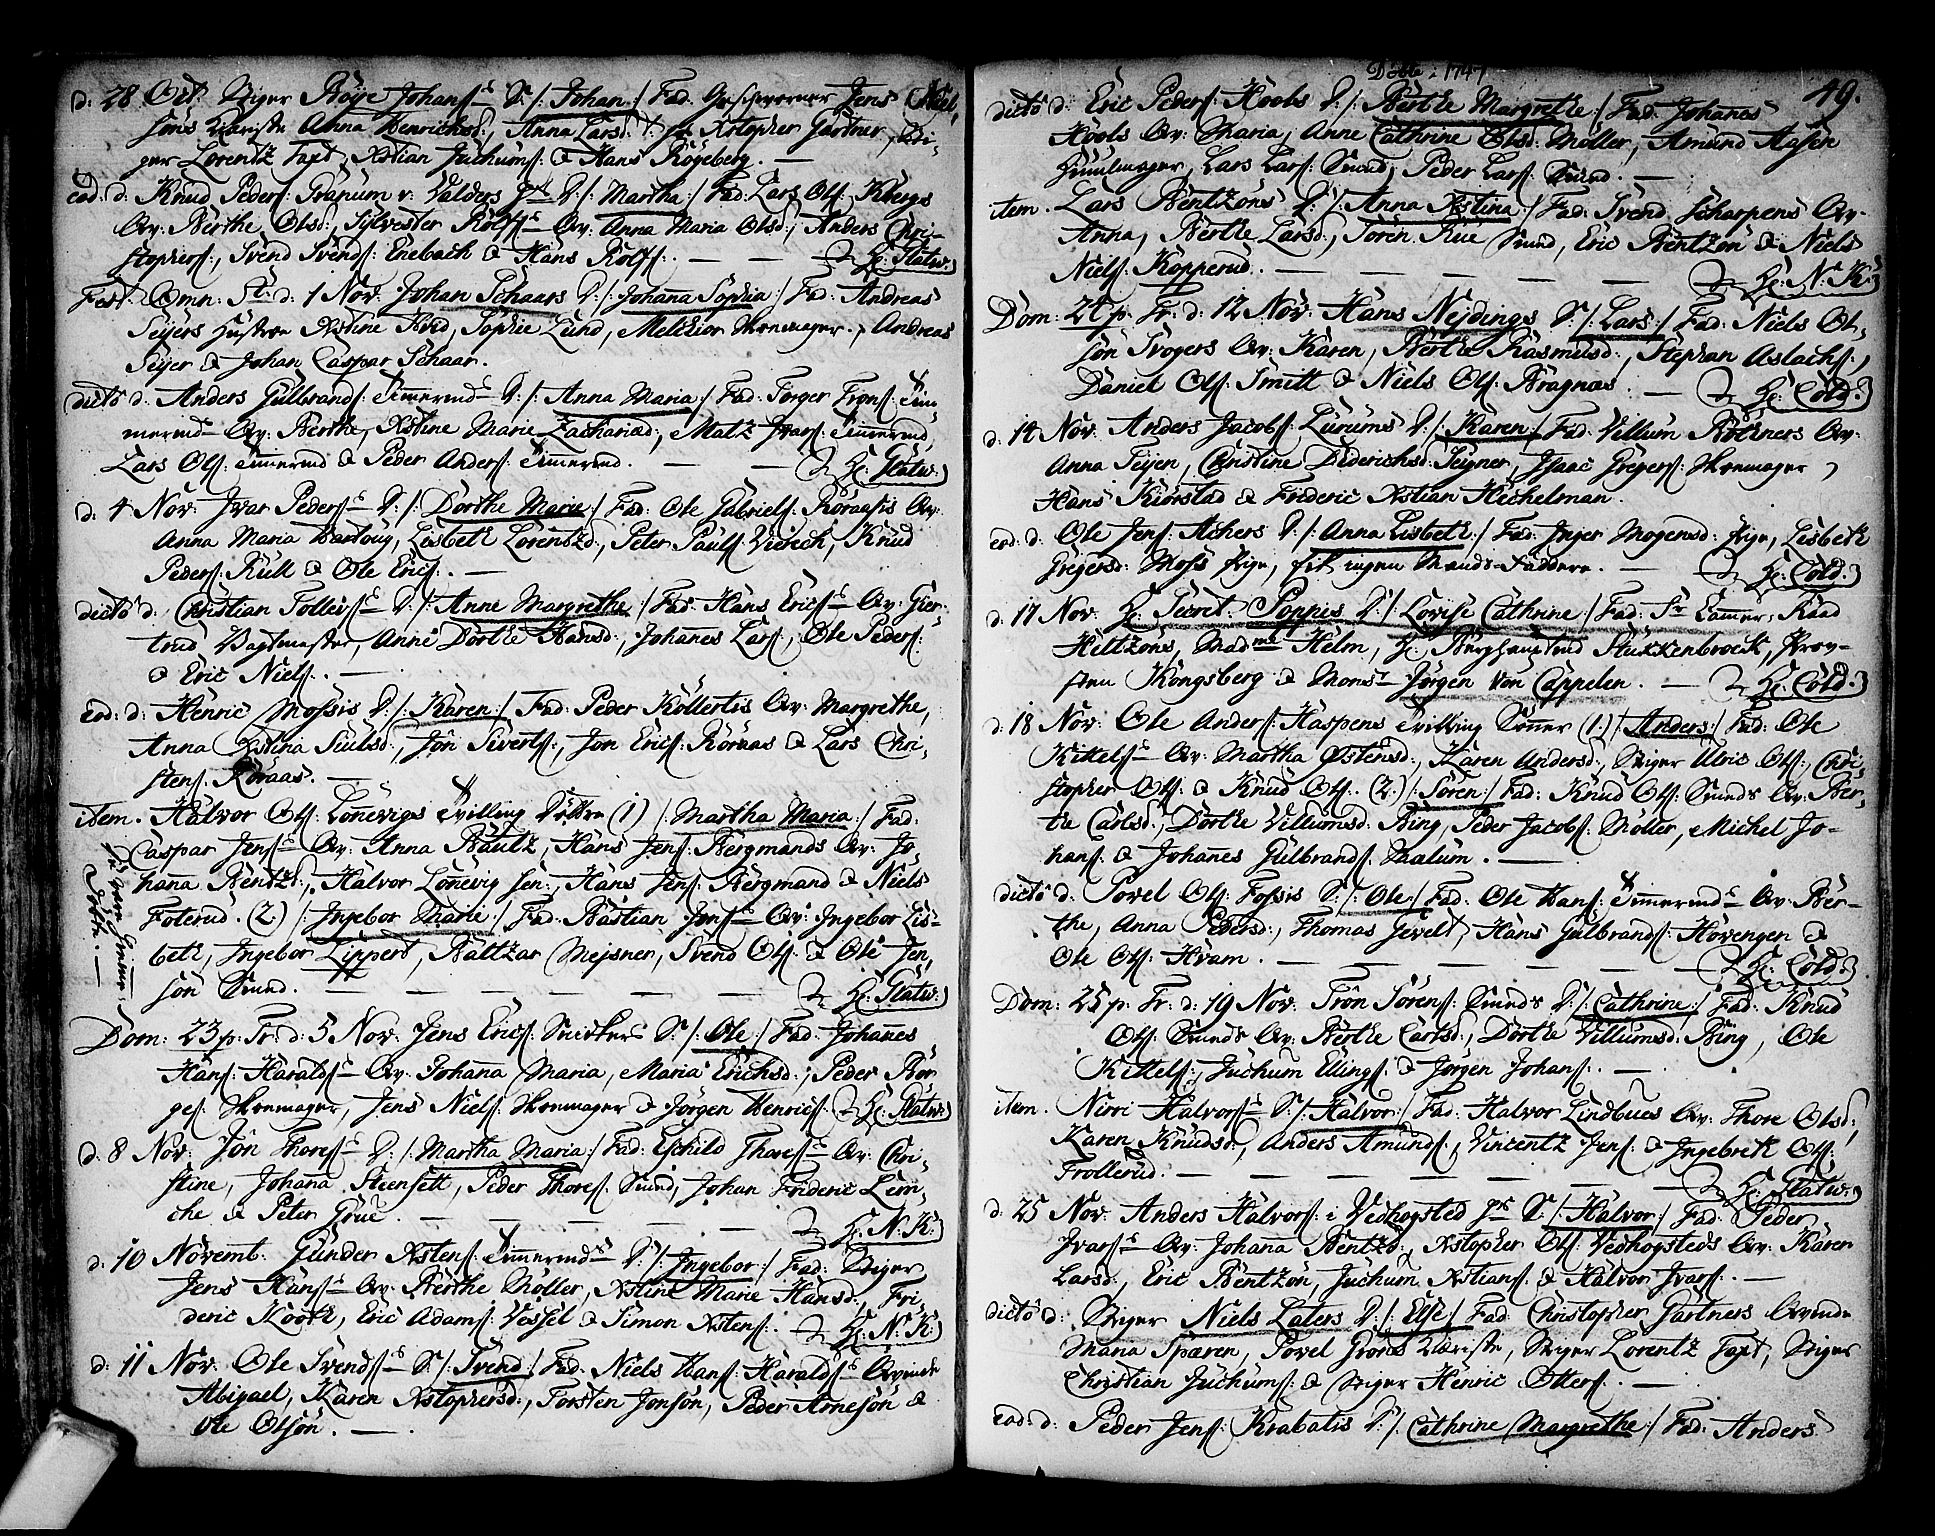 d: 28 Oct. Stiger Röye Johans: S: /: Johan :/ Fad. Geschworner Jens Niel,
söns Kieriste Anna Henrichsd:, Anna Larsd: Xstopher Gartner, Sti-
ger Lorentz Faxt, Xstian Juchums: & Hans Rögeberg. —
eod. d. Knud Peders: Granum v. Valders D: /: Martha :/ Fad: Lars Ols: Kbergs
Qv: Berthe Olsd:, Sylvester Rolfs: Qv: Anna Maria Olsd:, Anders Chri-
stophers:, Svend Svends: Enebach & Hans Rolfs: — — Hr: Flatw:
Fest. Omn: St: d: 1 Nov: Johan Schaars D: /: Johana Sophia :/ Fad: Andreas
Seyers Hustroe Xstine Hvid, Sophie Lund, Melchior Skomager, Andreas
Seyer & Johan Caspar Schaar.
dicto d. Anders Gulbrands: Timmermd D: /: Anna Maria :/ Fad: Torger Trons: Tim-
mermd Qv: Berthe, Xstine Marie Zachariæd:, Matz Ivars: Timmermd,
Lars Ols: Timmermd & Peder Anders: Timmermd. — — Hr: Flatw:
d: 4 Nov: Ivar Peders: D: /: Dorthe Marie :/ Fad: Ole Gabriels: Roraasis Qv:
Anna Maria Hartoug, Lisbeth Lorentzd:, Peter Pauls: Vierech, Knud
Peders: Kull & Ole Erics: —
dicto d: Christian Tollevs: D: /: Anne Margrethe :/ Fad: Hans Erics: Qv: Gier-
trud Vagtmester, Anne Dorthe Hansd:, Johanes Lars:, Ole Peders:
& Eric Niels: —
eod: d: Henric Mossis D: /: Karen :/ Fad: Peder Kollertis Qv: Margrethe,
Anna Xstina Siulsd:, Jon Siverts:, Jon Erics: Roraas & Lars Chri-
stens: Roraas. —
item. Halvor Ols: Lonevigs Tvilling Döttre (1) /: Martha Maria :/ Fad:
Caspar Jens: Qv: Anna Bautz, Hans Jens: Bergmands Qv: Jo-
hana Bentzd:, Halvor Lonevig sen:, Hans Jens: Bergmand & Niels
Foterud. (2) /: Ingebor Marie :/ Fad: Bastian Jons: Qv: Ingebor Lis-
beth, Ingebor Lippert, Baltzar Mejsner, Svend Ols: & Ole Jen,
sön Smed. — — — — Hr: Flatw:
Dom: 23 p. Tr: d: 5 Nov. Jens Erics: Snerkers S: /: Ole :/ Fad: Johanes
Hans: Haralds: Qv: Johana Maria, Maria Erichsd:, Peder Bör
ges: Skomager, Jens Niels: Skomager & Jörgen Henrics: Hr: Flatw:
d: 8 Nov: Jon Thores: D: /: Martha Maria :/ Fad: Eschild Thores: Qv: Chri-
stine, Johana Steensett, Peder Thores: Smed, Johan Frideric Lem-
che & Peter Grue. — — — Hr: N: K:
d: 10 Novemb: Gunder Xstens: Timmermds D: /: Ingebor :/ Fad: Stiger
Jens Hans: Qv: Berthe Möller, Xstine Marie Hansd:, Fri-
deric Koork, Eric Adams: Vessel & Simon Xstens: Hr: N: K:
d: 11 Nov: Ole Svends: S: /: Svend :/ Fad: Niels Hans: Haralds: Qvinde
Abigael, Karen Xstophersd:, Torsten Jonsön, Peder Arnesön &
Ole Olsön. —
Dobte i 1747
49.
dicto d: Eric Peders: Hools D: /: Berthe Margrethe :/ Fad: Johanes
Hools Qv: Maria, Anne Cathrine Olsd: Möller, Amund Aasen
Huulmager, Lars Lars: Smed, Peder Lars: Smed. —
item. Lars Bentzöns D: /: Anna Xstina :/ Fad: Svend Scharpens Qv:
Anna, Berthe Larsd:, Sören Kue Smed, Eric Bentzön & Niels
Niels: Kopperud. — — — — Hr: N: K:
Dom: 24 p. Tr: d: 12 Nov: Hans Nejdings S: /: Lars :/ Fad: Niels Ol-
sön Svogers Qv: Karen, Berthe Rasmusd:, Stephan Aslachs:,
Daniel Ols: Smitt & Niels Ols: Bragnæs. — Hr: Cold:
d: 14 Nov: Anders Jacobs: Lurums D: /: Karen :/ Fad: Villum Böchners Qv:
Anna Seyen, Christine Diderichsd: Seigner, Isaac Gregers: Skomager,
Hans Kiörstad & Frideric Xstian Hechelman.
eod: d: Ole Jens: Achers D: /: Anna Lisbeth :/ Fad: Inger Mogensd: Pige, Lisbeth
Gregersd: Moss Pige, fik ingen Mands-Faddere. — Hr: Cold:
d: 17 Nov: Hr: Secret: Poppes D: /: Lovise Cathrine :/ Fad: Sr Cammer-Raad
Heltzons, Madme Helm, Hr: Berghauptmd Stukkenbrock, Prov-
sten Kongsberg & Monsr Jörgen von Cappelen. — Hr: Cold:
d: 18 Nov: Ole Anders: Haspens Tvilling Sönner (1) /: Anders :/ Fad: Ole
Kittels: Qv: Martha Östensd:, Karen Andersd:, Stiger Ulric Ols:, Chri-
stopher Ols: & Knud Ols: (2) /: Sören :/ Fad: Knud Ols: Smeds Qv: Ber-
the Carlsd:, Dorthe Villumsd: Bing, Peder Jacobs: Möller, Michel Jo-
hans: & Johanes Gulbrands: Saalum. —
dicto d. Povel Ols: Fossis S: /: Ole :/ Fad: Ole Hans: Timmermds Qv: Ber-
the, Anna Pedersd:, Thomas Gevelt, Hans Gulbrands: Hovengen &
Ole Ols: Hvam. — — — — Hr: Cold:
Dom: 25 p. Tr: d: 19 Nov: Tron Sörens: Smeds D: /: Cathrine :/ Fad: Knud
Ols: Smeds Qv: Berthe Carlsd:, Dorthe Villumsd: Bing, Ole
Kittels:, Juchum Ellings: & Jörgen Johans: —
item. Nirri Halvors: S: /: Halvor :/ Fad: Halvor Lindbues Qv: Thore Olsd:,
Karen Knudsd:, Anders Amunds:, Vincentz Jens: & Ingebreth Ols:
Trollerud. — — — — Hr: Flatw:
d: 25 Nov: Anders Halvors: i Vedhogsted S: /: Halvor :/ Fad: Peder
Ivars: Qv: Johana Bentzd:, Xstopher Ols: Vedhogsteds Qv: Karen
Larsd:, Eric Bentzön, Juchum Xstians: & Halvor Ivars: —
dicto d: Stiger Niels Laters D: /: Else :/ Fad: Christopher Gartners Qvinde
Maria Sparen, Povel Grons Kieriste, Stiger Lorentz Faxt, Stiger
Christian Juchums: & Stiger Henric Otters: —
eod: d: Peder Jens: Krabatis D: /: Cathrine Margrethe :/ Fad: Anders